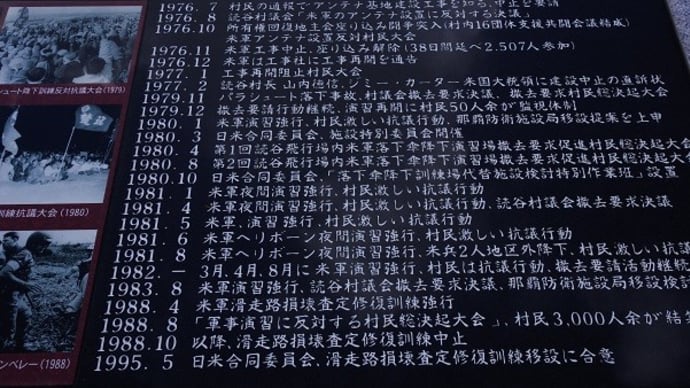 1976. 7 村民の通報でアンテナ基地建設工事を知る、中止を要請
1976. 8 読谷村議会「米軍のアンテナ設置に反対する決議」
1976.10 所有権回復地主会座り込み闘争突入(村内16団体支援共闘会議結成)
米軍アンテナ設置反対村民大会
1976.11 米軍工事中止、座り込み解除(38日間延べ2,507人参加)
1976.12 米軍は工事社に工事再開を通告
1977. 1 工事再開阻止村民大会
1977. 2 読谷村長 山内徳信、ジミー・カーター米国大統領に建設中止の直訴状
1979.11 パラシュート落下事故、村議会撤去要求決議、撤去要求村民総決起大会
1979.12 撤去要請行動継続、演習再開に村民50人余が監視体制
1980. 1 米軍演習強行、村民激しい抗議行動、那覇防衛施設局移設提案を上申
1980. 3 日米合同委員会、施設特別委員会開催
1980. 4 第1回読谷飛行場内米軍落下傘降下演習場撤去要求促進村民総決起大会
1980. 8 第2回読谷飛行場内米軍落下傘降下演習場撤去要求促進村民総決起大会
1980.10 日米合同委員会、「落下傘降下訓練場代替施設検討特別作業班」設置
1981. 1 米軍夜間演習強行、村民激しい抗議行動
1981. 4 米軍夜間演習強行、村民激しい抗議行動、読谷村議会撤去要求決議
1981. 5 米軍、演習強行、村民激しい抗議行動
1981. 6 米軍ヘリボーン夜間演習強行、村民激しい抗議行動
1981. 8 米軍ヘリボーン夜間演習強行、米兵2人地区外降下、村民激しい抗議
1982. ー 3月、4月、8月に米軍演習強行、村民は抗議行動、撤去要請活動継続
1983. 8 米軍演習強行、読谷村議会撤去要求決議、那覇防衛施設局移設検討
1988. 4 米軍滑走路損壊査定修復訓練強行
1988. 8 「軍事演習に反対する村民総決起大会」、村民3,000人余が結
1988.10 以降、滑走路損壊査定修復訓練中止
1995. 5 日米合同委員会、滑走路損壊査定修復訓練移設に合意
シュート降下訓練反対抗議大会(1979)
訓練抗議大会(1980)
ンベレー(1988)